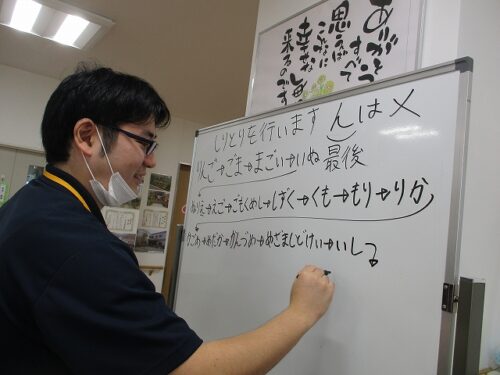 ありがとう
すべて
思えば
こんなに
幸せな
来るのです
しりとりを行います んは×
りんご→ごま→まごい→いぬ 最後
ぬりえ→えご→ごもくめし→しずく→くも→もり→りか
かごめ→めだか→かんづめ→めざましどけい→いしる